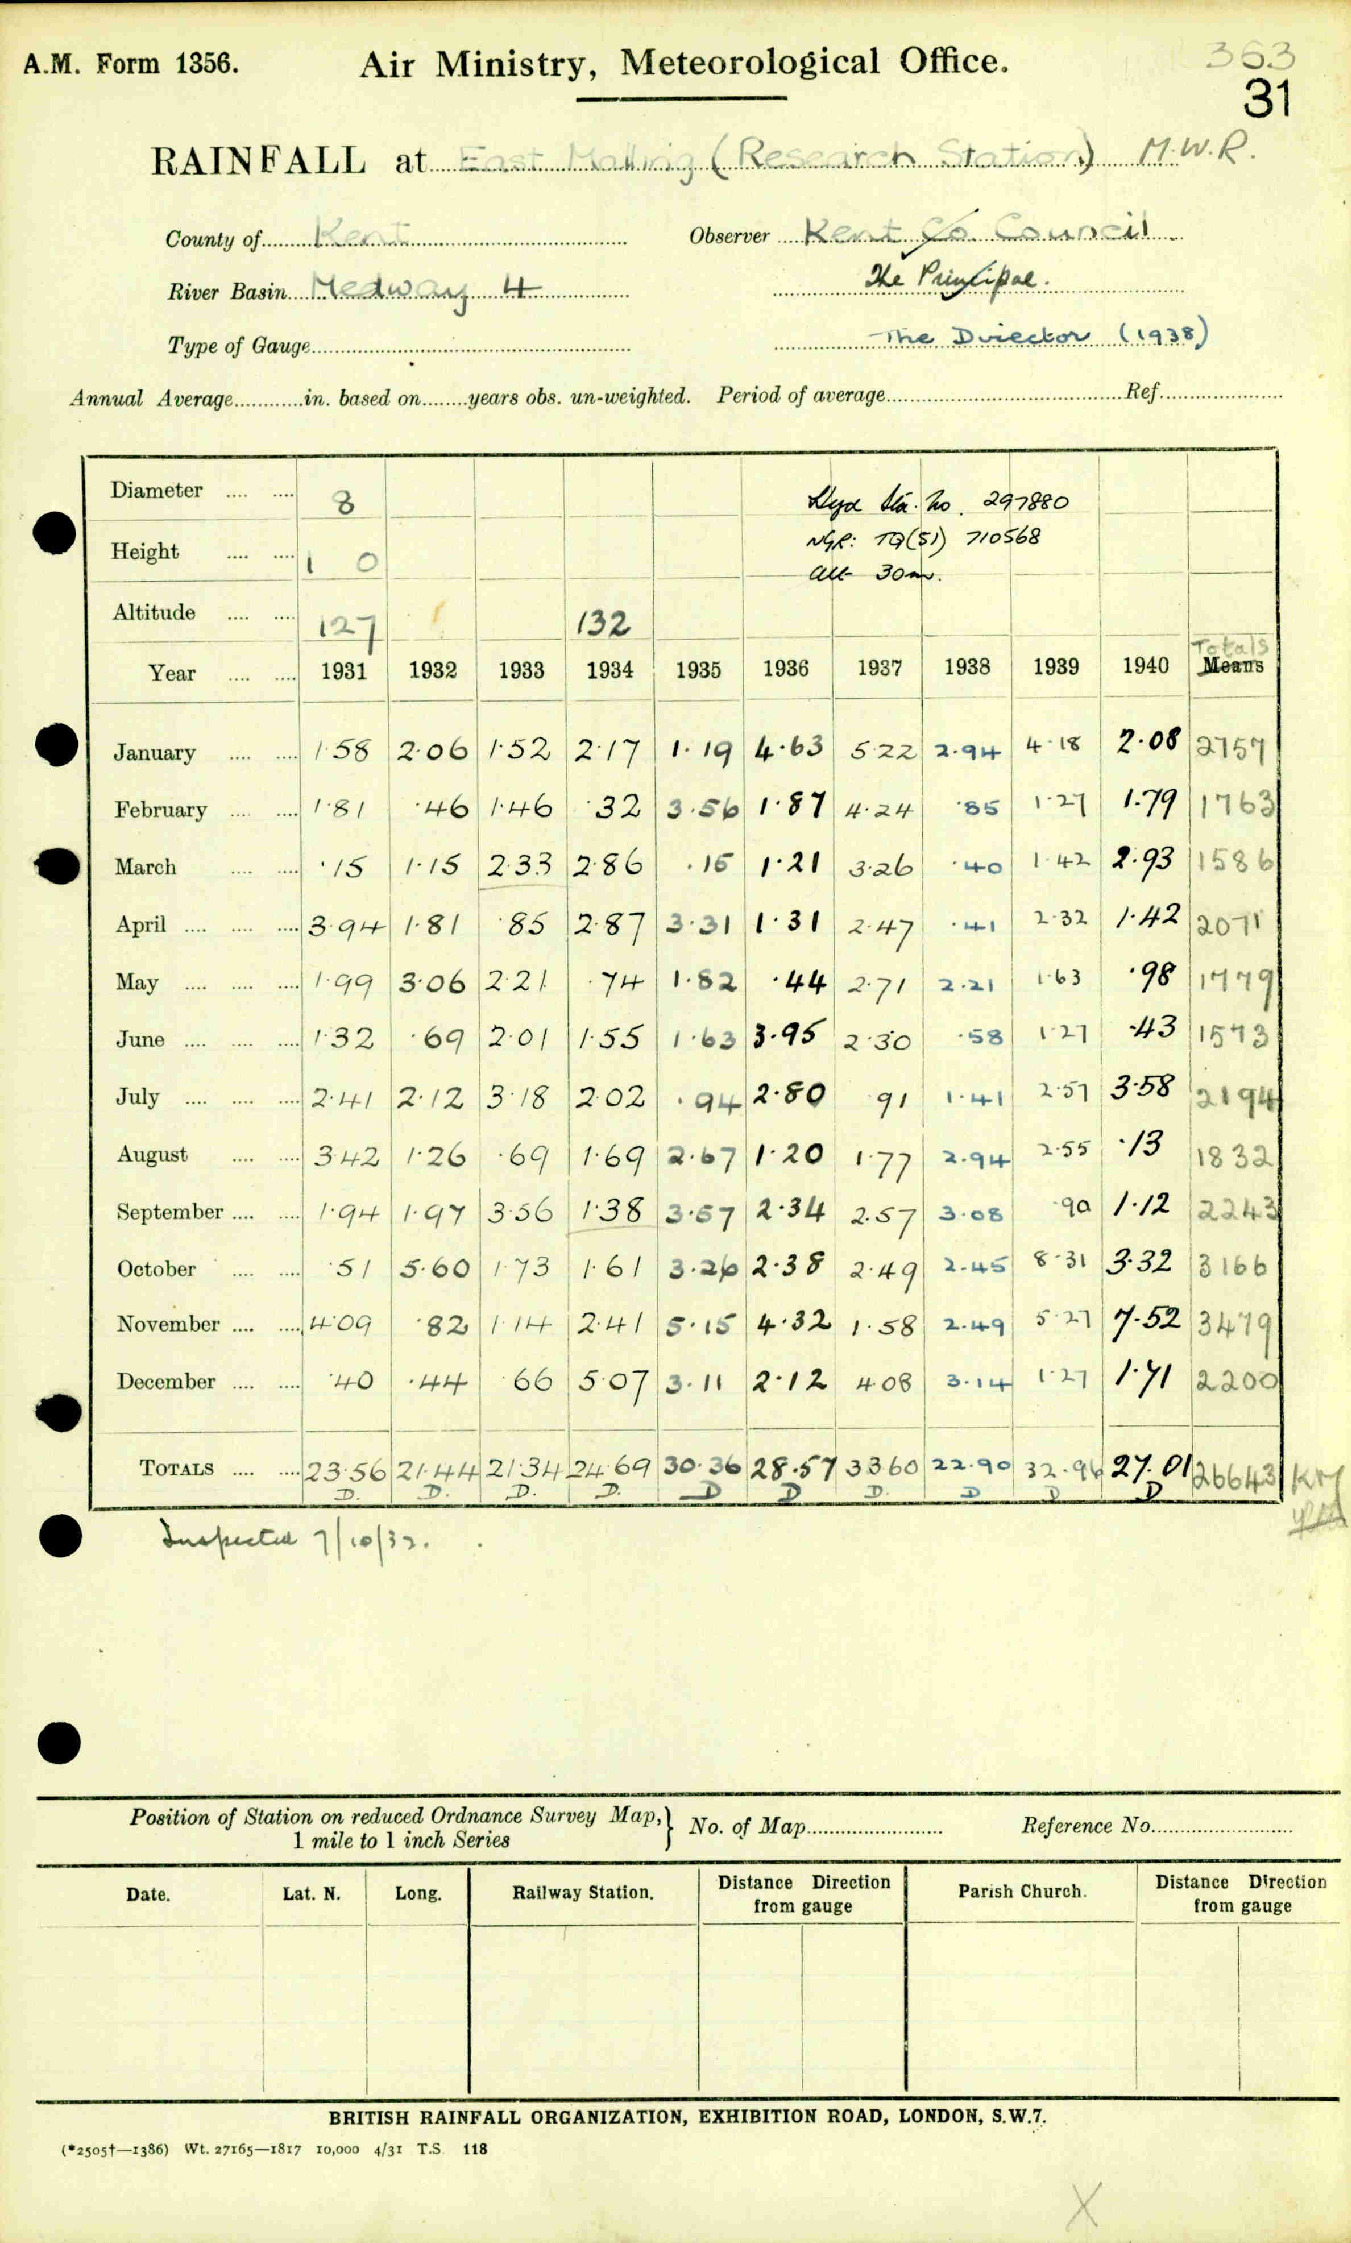 A.M. Form 1356.
Air Ministry, Meteorological Office.
363
31
RAINFALL at East Malling (Research Station) M.W.R.
County of Kent Observer Kent Co. Council
River Basin Medway 4 The Principal.
Type of Gauge The Director (1938)
Annual Average in. based on years obs. un-weighted. Period of average Ref.
Diameter 8
Hyd Sta. No. 297880
Height 1 0
NGR: TQ(51) 710568
Alt 30m.
Altitude 127 132
Totals
Year 1931 1932 1933 1934 1935 1936 1937 1938 1939 1940 Means
January 1.58 2.06 1.52 2.17 1.19 4.63 5.22 2.94 4.18 2.08 2757
February 1.81 .46 1.46 .32 3.56 1.87 4.24 .85 1.27 1.79 1763
March .15 1.15 2.33 2.86 .15 1.21 3.26 .40 1.42 2.93 1586
April 3.94 1.81 .85 2.87 3.31 1.31 2.47 .41 2.32 1.42 2071
May 1.99 3.06 2.21 .74 1.82 .44 2.71 2.21 1.63 .98 1779
June 1.32 .69 2.01 1.55 1.63 3.95 2.30 .58 1.27 .43 1573
July 2.41 2.12 3.18 2.02 .94 2.80 .91 1.41 2.57 3.58 2194
August 3.42 1.26 .69 1.69 2.67 1.20 1.77 2.94 2.55 .13 1832
September 1.94 1.97 3.56 1.38 3.57 2.34 2.57 3.08 .90 1.12 2243
October .51 5.60 1.73 1.61 3.26 2.38 2.49 2.45 8.31 3.32 3166
November 4.09 .82 1.14 2.41 5.15 4.32 1.58 2.49 5.27 7.52 3479
December .40 .44 .66 5.07 3.11 2.12 4.08 3.14 1.27 1.71 2200
TOTALS 23.56 21.44 21.34 24.69 30.36 28.57 33.60 22.90 32.96 27.01 26643
D. D. D. D. D D D. D D D
Inspected 7/10/32.
Position of Station on reduced Ordnance Survey Map, 1 mile to 1 inch Series } No. of Map Reference No.
Date. Lat. N. Long. Railway Station. Distance Direction from gauge Parish Church. Distance Direction from gauge
BRITISH RAINFALL ORGANIZATION, EXHIBITION ROAD, LONDON, S.W.7.
(*2505†—1386) Wt. 27165—1817 10,000 4/31 T.S. 118
X